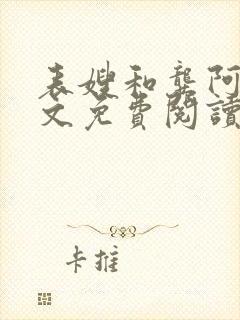 表嫂和龚阿
文免費閱讀
卡推